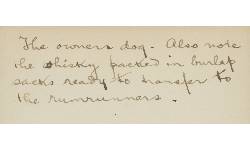 The owners dog. Also note
the whisky packed in burlap
sacks ready to transfer to
the rumrunners.